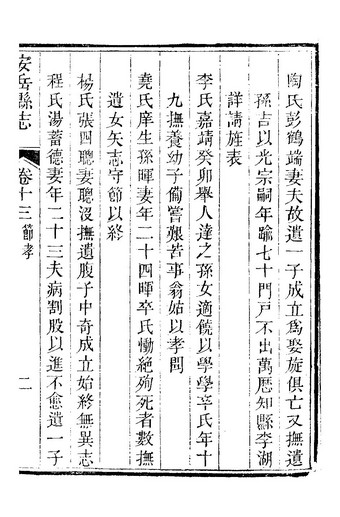 陶氏彭鶴端妻夫故遺一子成立為娶旋俱亡又撫遺
孫占以光宗嗣年踰七十門戸不出萬歴知縣李湖
詳請旌表
李氏嘉靖癸卯舉人達之孫女適饒以學學卒氏年十
九撫養幼子備嘗艱苦事翁姑以孝聞
堯氏庠生孫暉妻年二十四暉卒氏慟絶殉死者數撫
遺女矢志守節以終
楊氏張四聰妻聰沒撫遺腹子中奇成立始終無異志
程氏湯蓄德妻年二十三夫病割股以進不愈遺一子
安岳縣志
卷十三 節孝
二